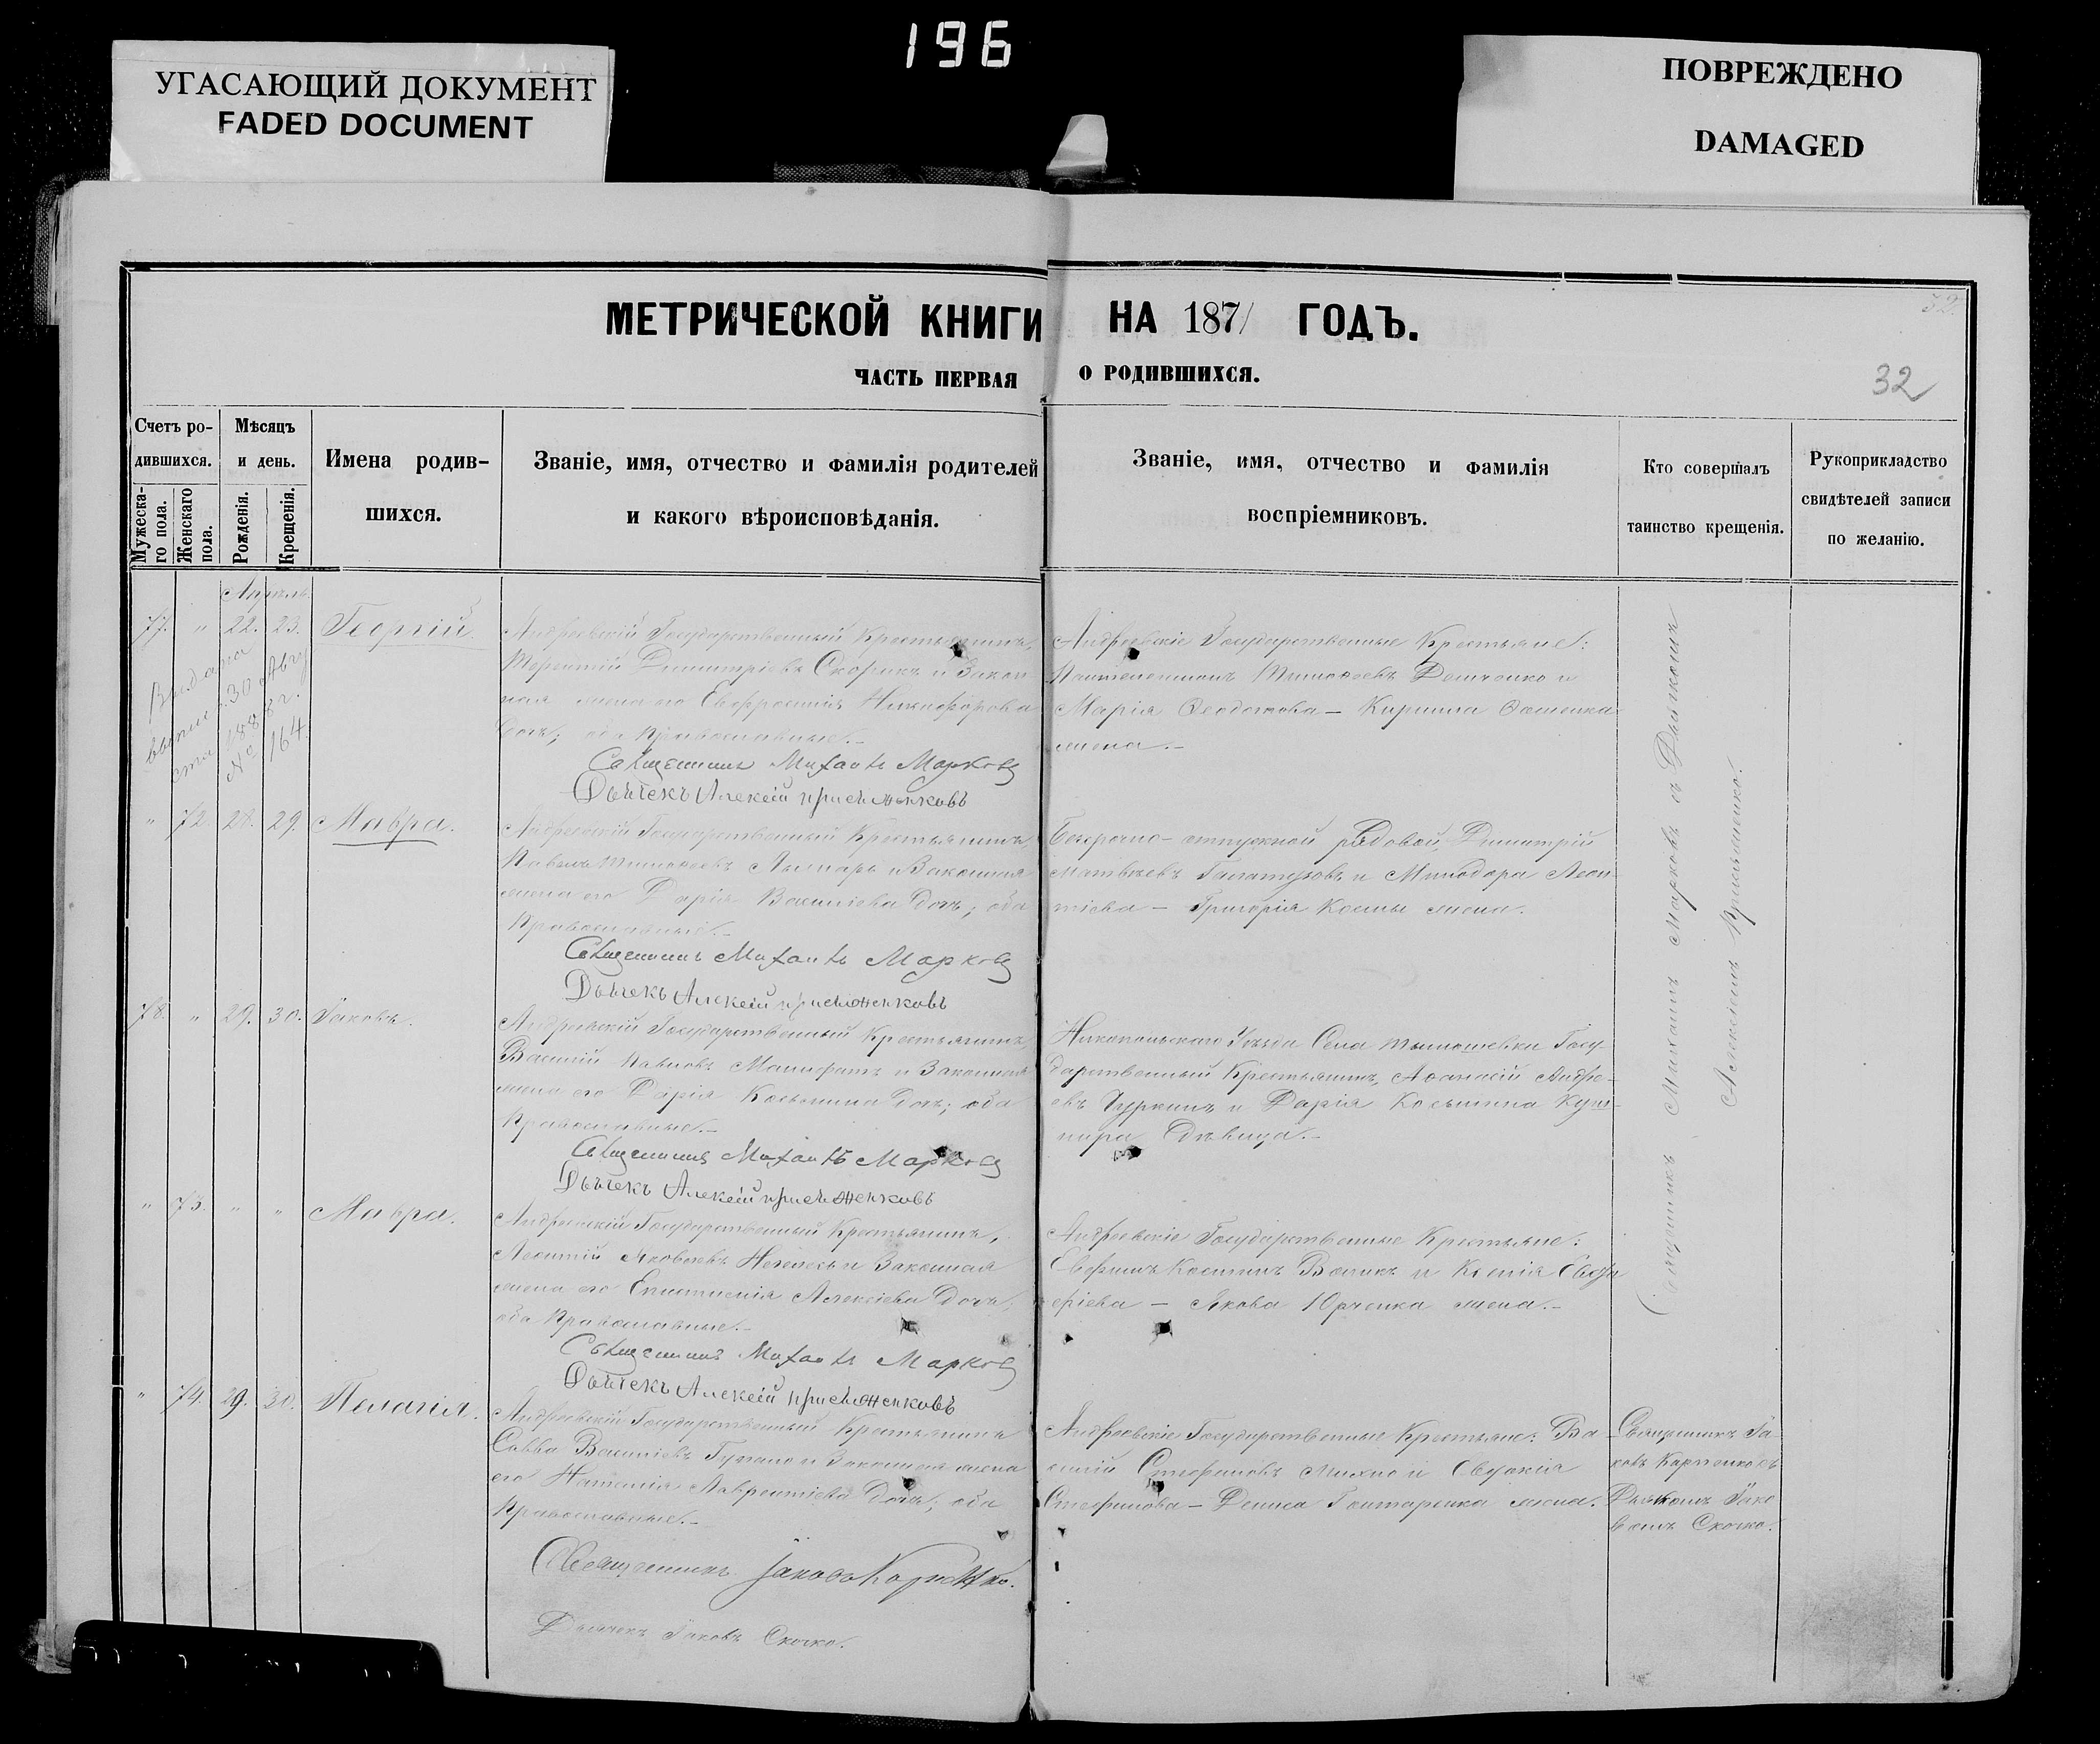 196
УГАСАЮЩИЙ ДОКУМЕНТ
FADED DOCUMENT
ПОВРЕЖДЕНО
DAMAGED
МЕТРИЧЕСКОЙ КНИГИ НА 1871 ГОДЪ.
ЧАСТЬ ПЕРВАЯ О РОДИВШИХСЯ.
32
32
Счетъ ро-
дившихся.
Мужеска-
го пола.
Женскаго
пола.
Мѣсяцъ
и день.
Рожденія.
Крещенія.
Имена родив-
шихся.
Званіе, имя, отчество и фамилія родителей
и какого вѣроисповѣданія.
Званіе, имя, отчество и фамилія
воспріемниковъ.
Кто совершалъ
таинство крещенія.
Рукоприкладство
свидѣтелей записи
по желанію.
Апрель
77. " 22. 23. Георгій.
Выдана
выпись 30 Авгу
ста 1888 г.
№ 164.
Андреевскій Государственный Крестьянинъ,
Терентій Димитріевъ Скорикъ и Закон
ная жена его Евфросинія Никифорова
дочь; оба Православные.-
Священникъ Михаилъ Марковъ
Дьячекъ Алексій
Андреевскіе Государственные Крестьяне:
Пантелеимонъ Тимофеевъ Демченко и
Марія Феодотова - Кирилла
жена.-
" 72. 28. 29. Мавра.
Андреевскій Государственный Крестьянинъ,
Павелъ Тимофеевъ Лымарь и Законная
жена его Дарія Васильева дочь; оба
Православные.-
Священникъ Михаилъ Марковъ
Дьячекъ Алексій
Безсрочно-отпускной рядовой, Димитрій
Матвѣевъ и Минодора Леон-
тіева - Григорія Косты жена.
78. " 29. 30. Іаковъ.
Андреевскій Государственный Крестьянинъ,
Василій Павловъ и Законная
жена его Дарія Косьмина дочь; оба
Православные.-
Священникъ Михаилъ Марковъ
Дьячекъ Алексій
Никопольскаго Уѣзда Села Тимошевки Госу-
дарственный Крестьянинъ, Афанасій Андре-
евъ Чуркинъ и Дарія Косьмина Куш-
нира Дѣвица.-
" 73. " " Мавра.
Андреевскій Государственный Крестьянинъ,
Леонтій Яковлевъ и Законная
жена его Епистимія Алексіева Дочь,
оба Православные.-
Священникъ Михаилъ Марковъ
Дьячекъ Алексій
Андреевскіе Государственные Крестьяне:
Евфимъ Костинъ и Ксенія Евфи
- Якова Юрченка жена.-
" 74. 29. 30. Пелагія.
Андреевскій Государственный Крестьянинъ
Савва Васильевъ и Законная жена
его Наталія Лаврентіева Дочь; оба
Православные.-
Священникъ Іаковъ
Дьячекъ Іаковъ Скочко.
Андреевскіе Государственные Крестьяне: Ва-
силій Стефановъ Михно и Евдокія
Стефанова - Дениса Гонтаренка жена.
Священникъ Михаилъ Марковъ съ Дьячкомъ
Алексіемъ
Священникъ Іа-
ковъ
Дьячкомъ Іако
вомъ Скочко.